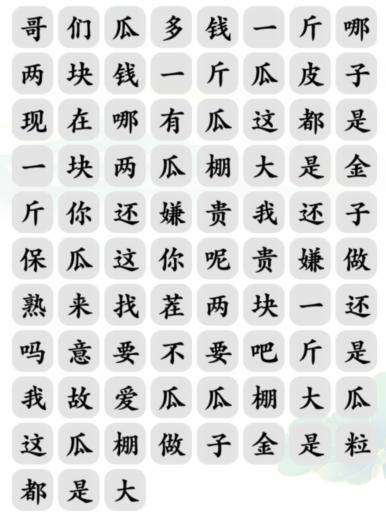 哥们瓜多钱一斤哪
两块钱一斤瓜皮子
现在哪有瓜这都是
一块两瓜棚大是金
斤你还嫌贵我还子
保瓜这你呢贵嫌做
熟来找茬两块一还
吗意要不要吧斤是
我故爱瓜瓜棚大瓜
这瓜棚做子金是粒
都是大